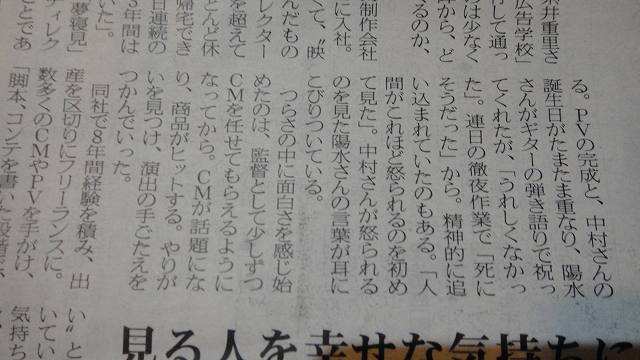 糸井重里さ
広告学校」
のは少なく
行して通っ
てるのか、
から、ど
制作会社
に入社。
て、〝映
んだもの
レクター
を超えて
とんど休
帰宅でき
日連続の
3年間は
いた」。
夢寝見」
ディレク
ことであ
る。PVの完成と、中村さんの
誕生日がたまたま重なり、陽水
さんがギターの弾き語りで祝っ
てくれたが、「うれしくなかっ
た」。連日の徹夜作業で「死に
そうだった」から。精神的に追
い込まれていたのもある。「人
間がこれほど怒られるのを初め
て見た」。中村さんが怒られる
のを見た陽水さんの言葉が耳に
こびりついている。
つらさの中に面白さを感じ始
めたのは、監督として少しずつ
CMを任せてもらえるように
なってから。CMが話題にな
り、商品がヒットする。やりが
いを見つけ、演出の手ごたえを
つかんでいった。
同社で8年間経験を積み、出
産を区切りにフリーランスに。
数多くのCMやPVを手がけ、
「脚本、コンテを書いた
い〟と
いてい
気持ち
見る人を幸せな気持ちに